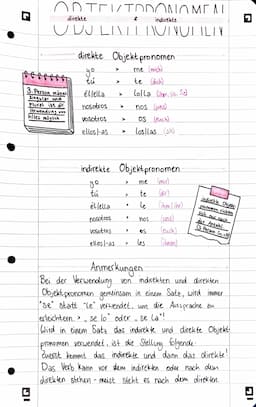 OBJEKTPRONOMEN
direkte & indirekte
direkte Objektpronomen
yo > me (mich)
tú > te (dich)
él/ella > lo/la
nosotros > nos (uns)
vosotros > os (euch)
ellos/-as > los/las (sie)
3. Person männl.
Singular und
Plural ist die
Verwendung von
alles möglich
indirekte Objektpronomen
yo > me (mir)
tú > te (dir)
él/ella > le (ihm/ihr)
nosotros > nos (uns)
vosotros > os (euch)
ellos/-as > les (ihnen)
indirekte Objekt-
pronomen
Anmerkungen
Bei der Verwendung von indirekten und direkten
Objektpronomen gemeinsam in einem Satz, wird immer
"se" statt "le" verwendet, um die Aussprache zu
erleichtern. > „se lo" oder „se la"!
Wird in einem Satz das indirekte und direkte Objekt-
pronomen verwendet, ist die Stellung folgende:
Zuerst kommt das indirekte und dann das direkte!
Das Verb kann vor dem indirekten oder nach dem
direkten stehen - meist steht es nach dem direkten.